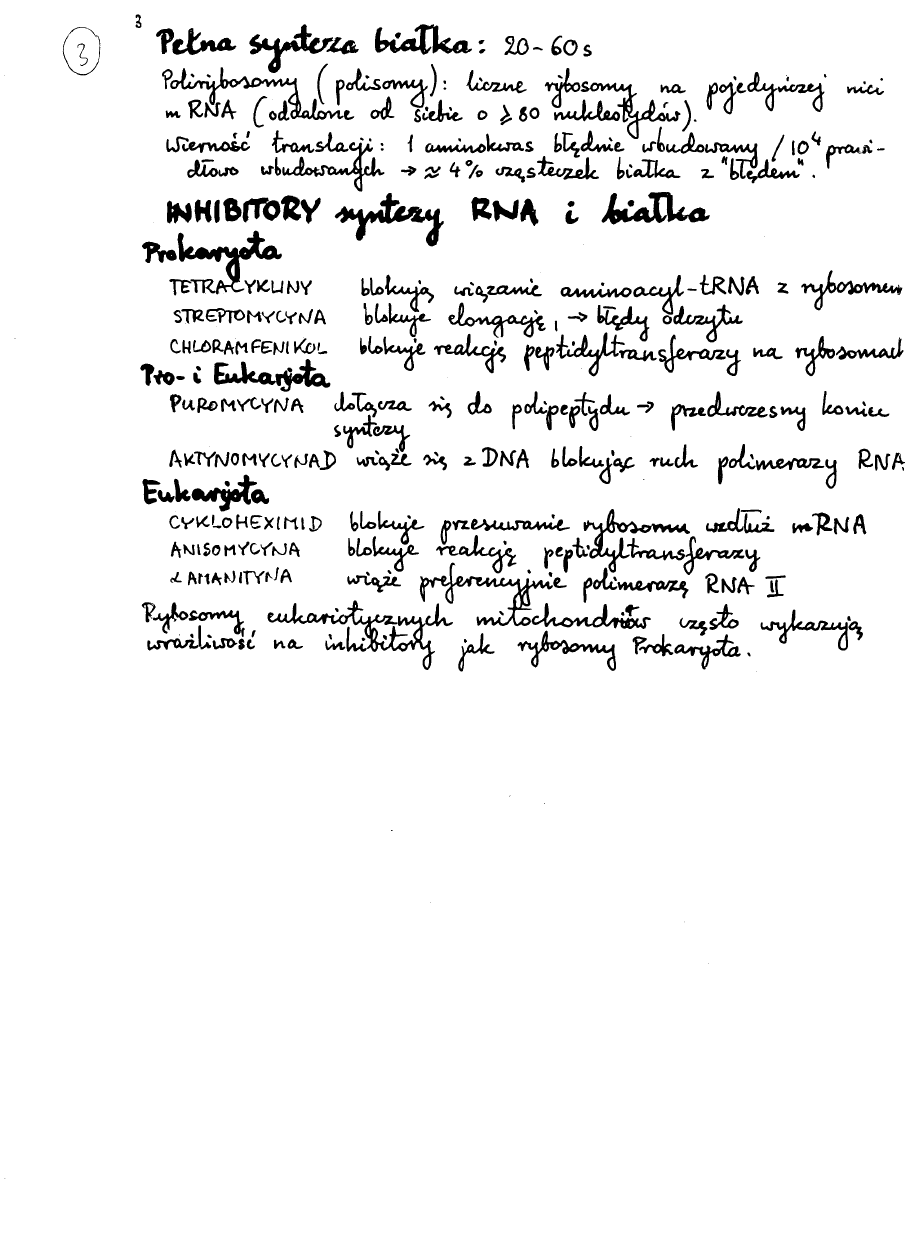 3
3
Pełna synteza białka: 20-60 s
Polirybosomy (polisomy): liczne rybosomy na pojedyńczej nici
mRNA (oddalone od siebie o ≥ 80 nukleotydów).
Wierność translacji: 1 aminokwas błędnie wbudowany / 10⁴ prawi-
dłowo wbudowanych → ≈ 4% cząsteczek białka z "błędem".
INHIBITORY syntezy RNA i białka
Prokaryota
TETRACYKLINY blokują wiązanie aminoacyl-tRNA z rybosomem
STREPTOMYCYNA blokuje elongację, → błędy odczytu
CHLORAMFENIKOL blokuje reakcję peptidyltransferazy na rybosomach
Pro- i Eukarjota
PUROMYCYNA dołącza się do polipeptydu → przedwczesny koniec
syntezy
AKTYNOMYCYNA D wiąże się z DNA blokując ruch polimerazy RNA
Eukarjota
CYKLOHEXIMID blokuje przesuwanie rybosomu wzdłuż mRNA
ANISOMYCYNA blokuje reakcję peptidyltransferazy
α AMANITYNA wiąże preferencyjnie polimerazę RNA II
Rybosomy eukariotycznych mitochondriów często wykazują
wrażliwość na inhibitory jak rybosomy Prokaryota.